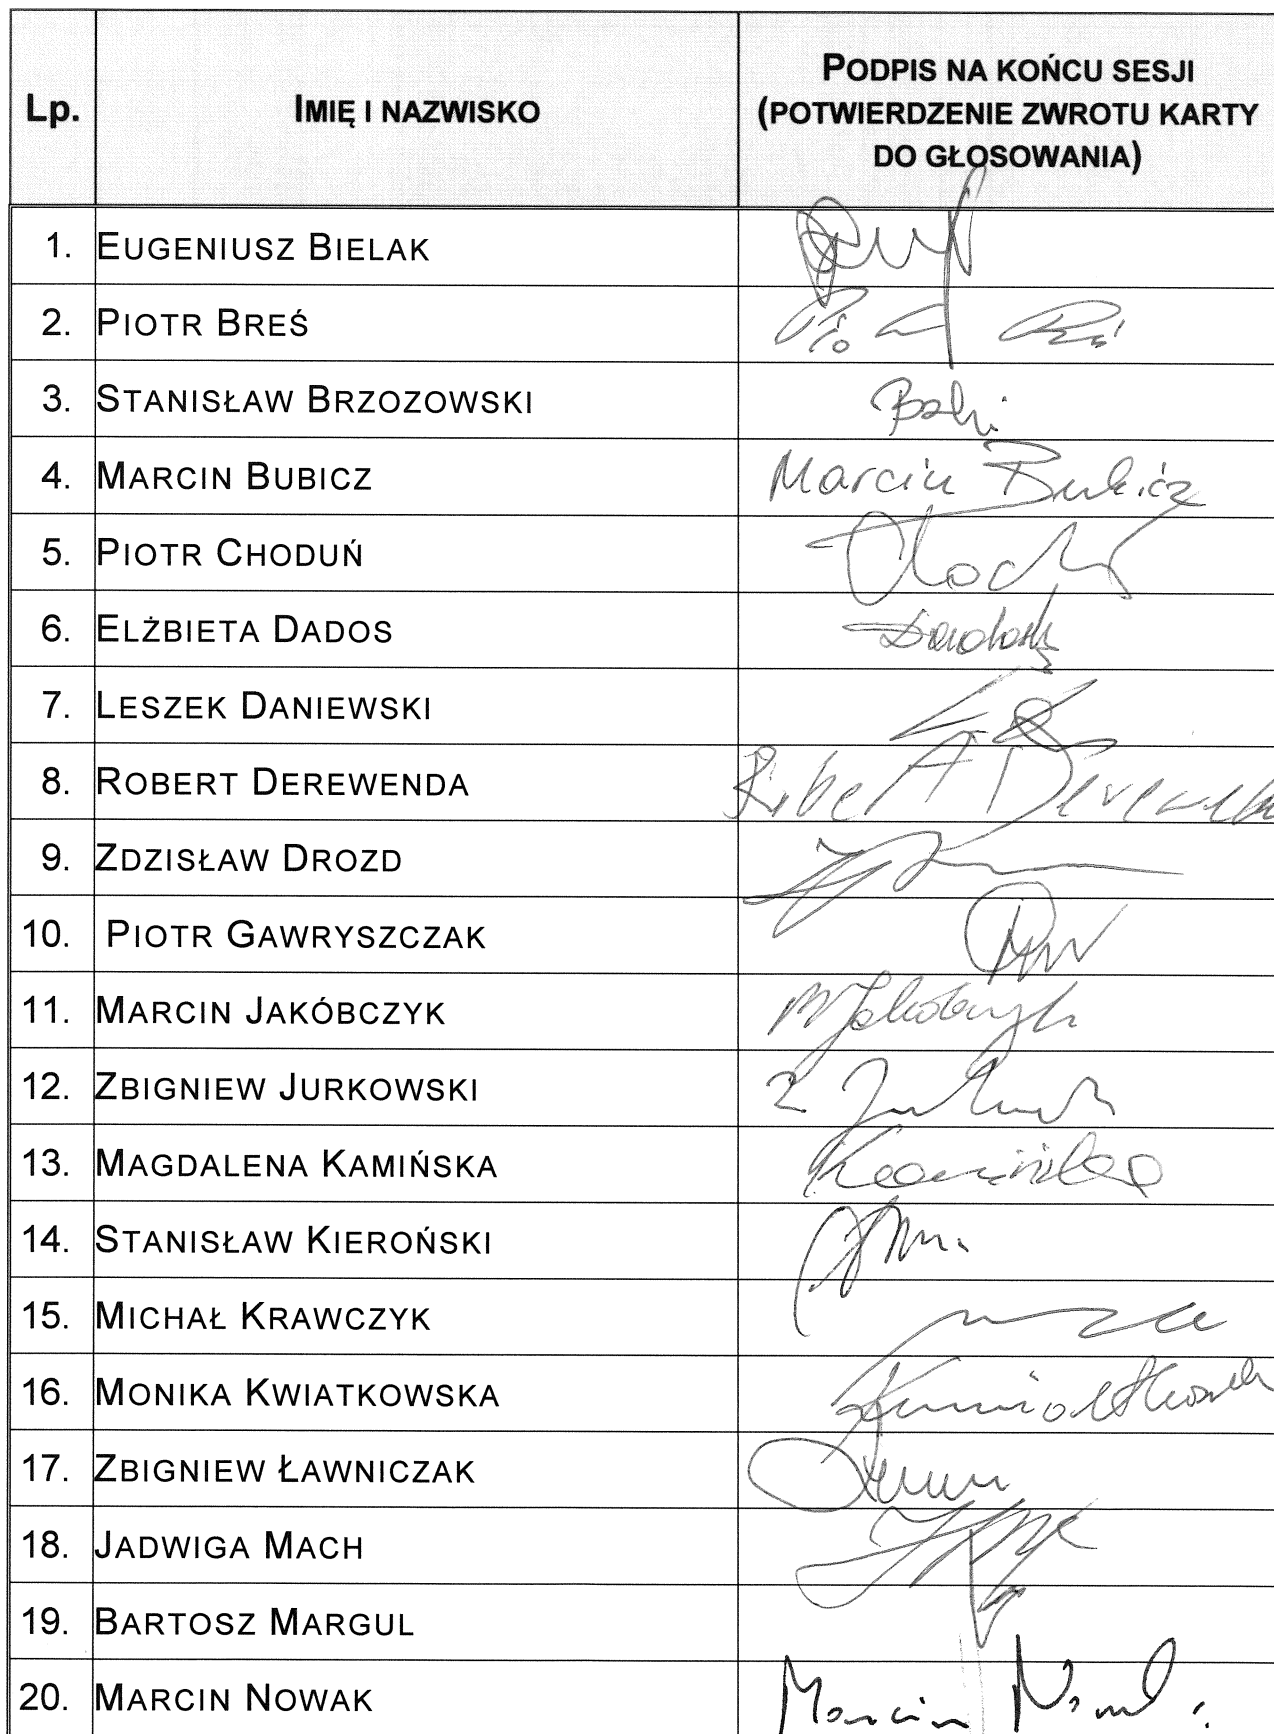 Lp.
IMIĘ I NAZWISKO
PODPIS NA KOŃCU SESJI
(POTWIERDZENIE ZWROTU KARTY
DO GŁOSOWANIA)
1. EUGENIUSZ BIELAK
2. PIOTR BREŚ
3. STANISŁAW BRZOZOWSKI
4. MARCIN BUBICZ Marcin Bubicz
5. PIOTR CHODUŃ
6. ELŻBIETA DADOS
7. LESZEK DANIEWSKI
8. ROBERT DEREWENDA Robert Derewenda
9. ZDZISŁAW DROZD
10. PIOTR GAWRYSZCZAK
11. MARCIN JAKÓBCZYK M Jakóbczyk
12. ZBIGNIEW JURKOWSKI
13. MAGDALENA KAMIŃSKA Kamińska
14. STANISŁAW KIEROŃSKI
15. MICHAŁ KRAWCZYK
16. MONIKA KWIATKOWSKA
17. ZBIGNIEW ŁAWNICZAK
18. JADWIGA MACH
19. BARTOSZ MARGUL
20. MARCIN NOWAK Marcin Nowak